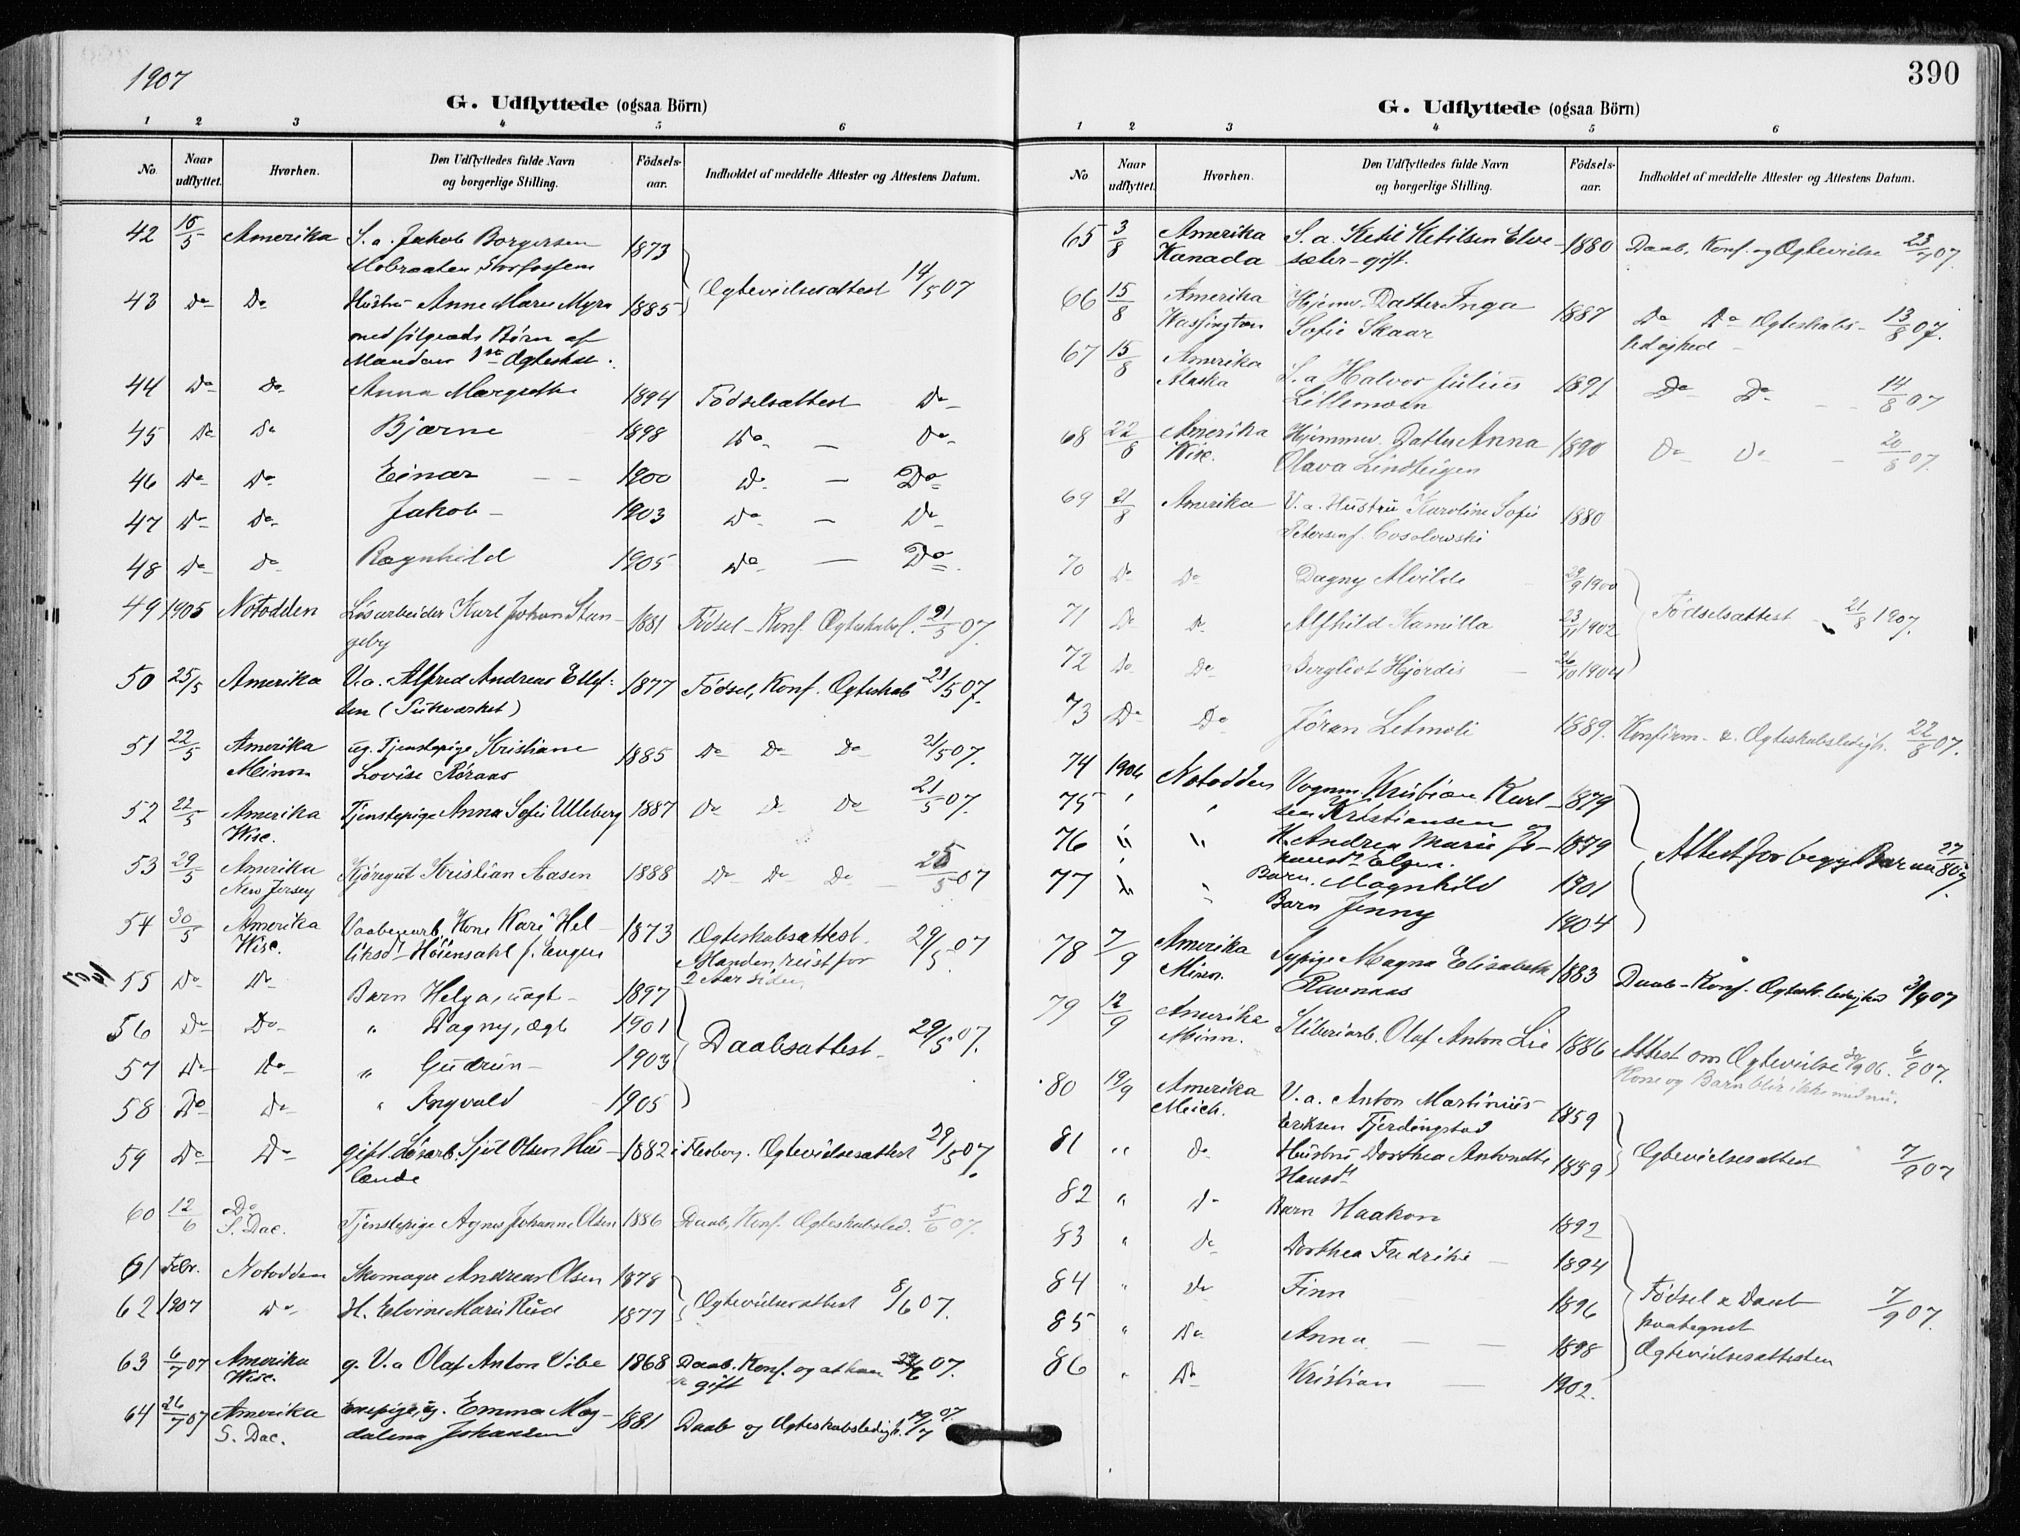 1907
G. Udflyttede (ogsaa Börn)
1 2 3 4 5 6
No. Naar udflyttet. Hvorhen. Den Udflyttedes fulde Navn og borgerlige Stilling. Födsels-aar. Indholdet af meddelte Attester og Attestens Datum.
42 16/5 Amerika S. a. Jakob Borgersen 1873
Mobraaten, Storfossen
Ogtevielsesattest 14/5 07
43 Do Do Hustru Anne Marie Myra 1885
medfølgende Børn af
Mandens 1ste Ogteskab.
44 Do Do Anna Margrethe 1894 Födselsattest Do
45 Do Do Bjarne 1898 Do — Do
46 Do Do Einar — 1900 Do — Do
47 Do Do Jakob — 1903 Do — Do
48 Do Do Ragnhild 1905 Do — Do
49 1905 Notodden Løsarbeider Karl Johan Stan- 1881 Födsel- Konf. Ogteskabsl. 21/5 07.
geby
50 25/5 Amerika V. a. Alfred Andreas Ellef- 1877 Födsel, Konf. Ogteskab 21/5 07.
sen
51 22/5 Amerika ug. Tjenstepige Kristiane 1885 Do Do Do 21/5 07.
Minn. Lovise Røraas
52 22/5 Amerika Tjenstepige Anna Sofie Ulleberg 1887 Do Do Do 21/5 07.
Wisc.
53 29/5 Amerika Kjöregut Kristian Aasen 1888 Do Do Do 25/5 07
New Jersey
54 30/5 Amerika Vaabenarb. Kone Kari Hel- 1873 Ogteskabsattest. 29/5 07
Wisc. liksdr Høiensahl f. Engen Manden reist for
2 Aar siden.
55 Do Do Barn Helga, uægt — 1897
56 Do Do " Dagny, ægt 1901 Daabsattest 29/5 07.
57 Do Do " Gudrun — 1903
58 Do Do " Ingvald 1905
59 Do Do gift Løsarb. Sjul Olsen Hus- 1882 i Flesberg. Ogtevielsesattest 29/5 07.
lænde
60 12/6 Do Tjenstepige Agnes Johanne Olsen 1886 Daab, Konf. Ogteskabsled. 5/6 07.
S. Dac.
61 Febr. Notodden Skomager Andreas Olsen 1878
62 1907 Do H. Elvine Marie Rud 1877 Ogtevielsesattest 8/6 07.
63 6/7 07 Amerika g. V. a Olaf Anton Vibe 1868 Daab. Konf. og at han 29/6 07.
Wisc. er gift
64 26/7 07 Amerika ug. Emma Mag- 1881 Daab og Ogteskabsledigh. 19/7 07
S. Dac. dalena Johansen
390
G. Udflyttede (ogsaa Börn)
1 2 3 4 5 6
No Naar udflyttet. Hvorhen. Den Udflyttedes fulde Navn og borgerlige Stilling. Födsels-aar. Indholdet af meddelte Attester og Attestens Datum.
65 3/8 Amerika S. a. Ketil Ketilsen Elve- 1880 Daab, Konf. og Ogtevielse 23/7 07.
Kanada sæter - gift.
66 15/8 Amerika Hjemv. Datter Inga 1887 Do Do Ogteskabs- 13/8 07.
Wassington Sofie Skaar ledighed —
67 15/8 Amerika S. a Halvor Julius 1891 Do Do — 14/8 07
Alaska Lillemoen
68 22/8 Amerika Hjemmev. Datter Anna 1890 Do Do — 20/8 07.
Wisc. Olava Lindteigen
69 21/8 Amerika V. a. Hustru Karoline Sofie 1880
Petersen f. Cosolowski
70 Do Do Dagny Alvilde — 29/9 1900
71 Do Do Alfhild Kamilla 23/11 1902 Födselsattest — 21/8 1907.
72 Do Do Bergliot Hjördis — 26/10 1904
73 Do Do Jöran Letmoli 1889. Konfirm- & Ogteskabsledigh. 22/8 07.
74 1906 Notodden Vognm. Kristian Karl- 1879
75 " " sen Kristiansen og
76 " " H. Andrea Marie Jo- 1879 Attest for begge Barnene 27/8 07.
hansdr
77 " " Barn. Magnhild 1901
Barn Jenny 1904
78 7/9 Amerika Sypige Magna Elisabeth 1883 Daab- Konf. Ogtesk. ledighed 3/9 07
Minn. Ravnaas
79 12/9 Amerika Sliberiarb. Olaf Anton Lie 1886 Attest om Ogtevielse 30/9 06. 6/9 07.
Minn. Kone og Barn blir ikke med nu.
80 19/9 Amerika V. a. Anton Martinius 1859
Mich. Eriksen Fjerdingstad
81 " Do Hustru Dorthea Antonette 1859 Ogtevielsesattest 7/9 07
Hansdr
82 " Do Barn Haakon 1892
83 " Do Dorthea Fredrikke — 1894
84 " Do Finn 1896 Födsel & Daab 7/9 07.
85 " Do Anna — — 1898 paategnet
86 " Do Kristian — 1902. Ogtevielsesattesten